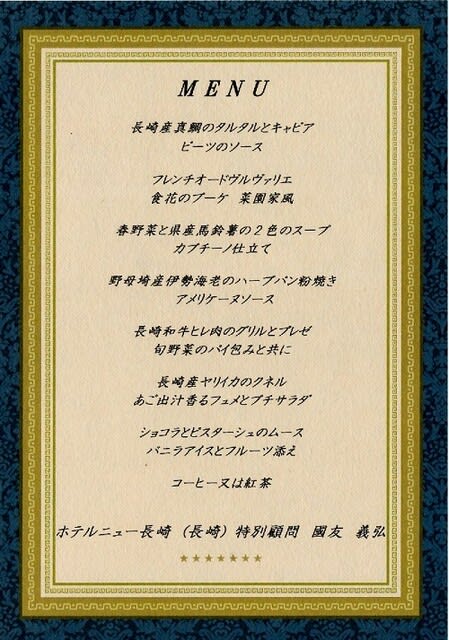 MENU
長崎産真鯛のタルタルとキャビア
ビーツのソース
フレンチオードヴルヴァリエ
食花のブーケ 菜園家風
春野菜と県産馬鈴薯の2色のスープ
カプチーノ仕立て
野母埼産伊勢海老のハーブパン粉焼き
アメリケーヌソース
長崎和牛ヒレ肉のグリルとブレゼ
旬野菜のパイ包みと共に
長崎産ヤリイカのクネル
あご出汁香るフュメとプチサラダ
ショコラとピスターシュのムース
バニラアイスとフルーツ添え
コーヒー又は紅茶
ホテルニュー長崎（長崎）特別顧問 國友 義弘
★★★★★★★